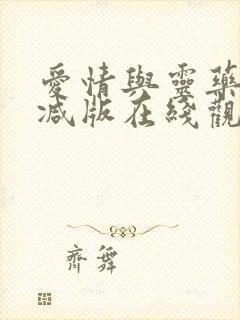 愛情與靈藥
減版在綫觀
齊舞